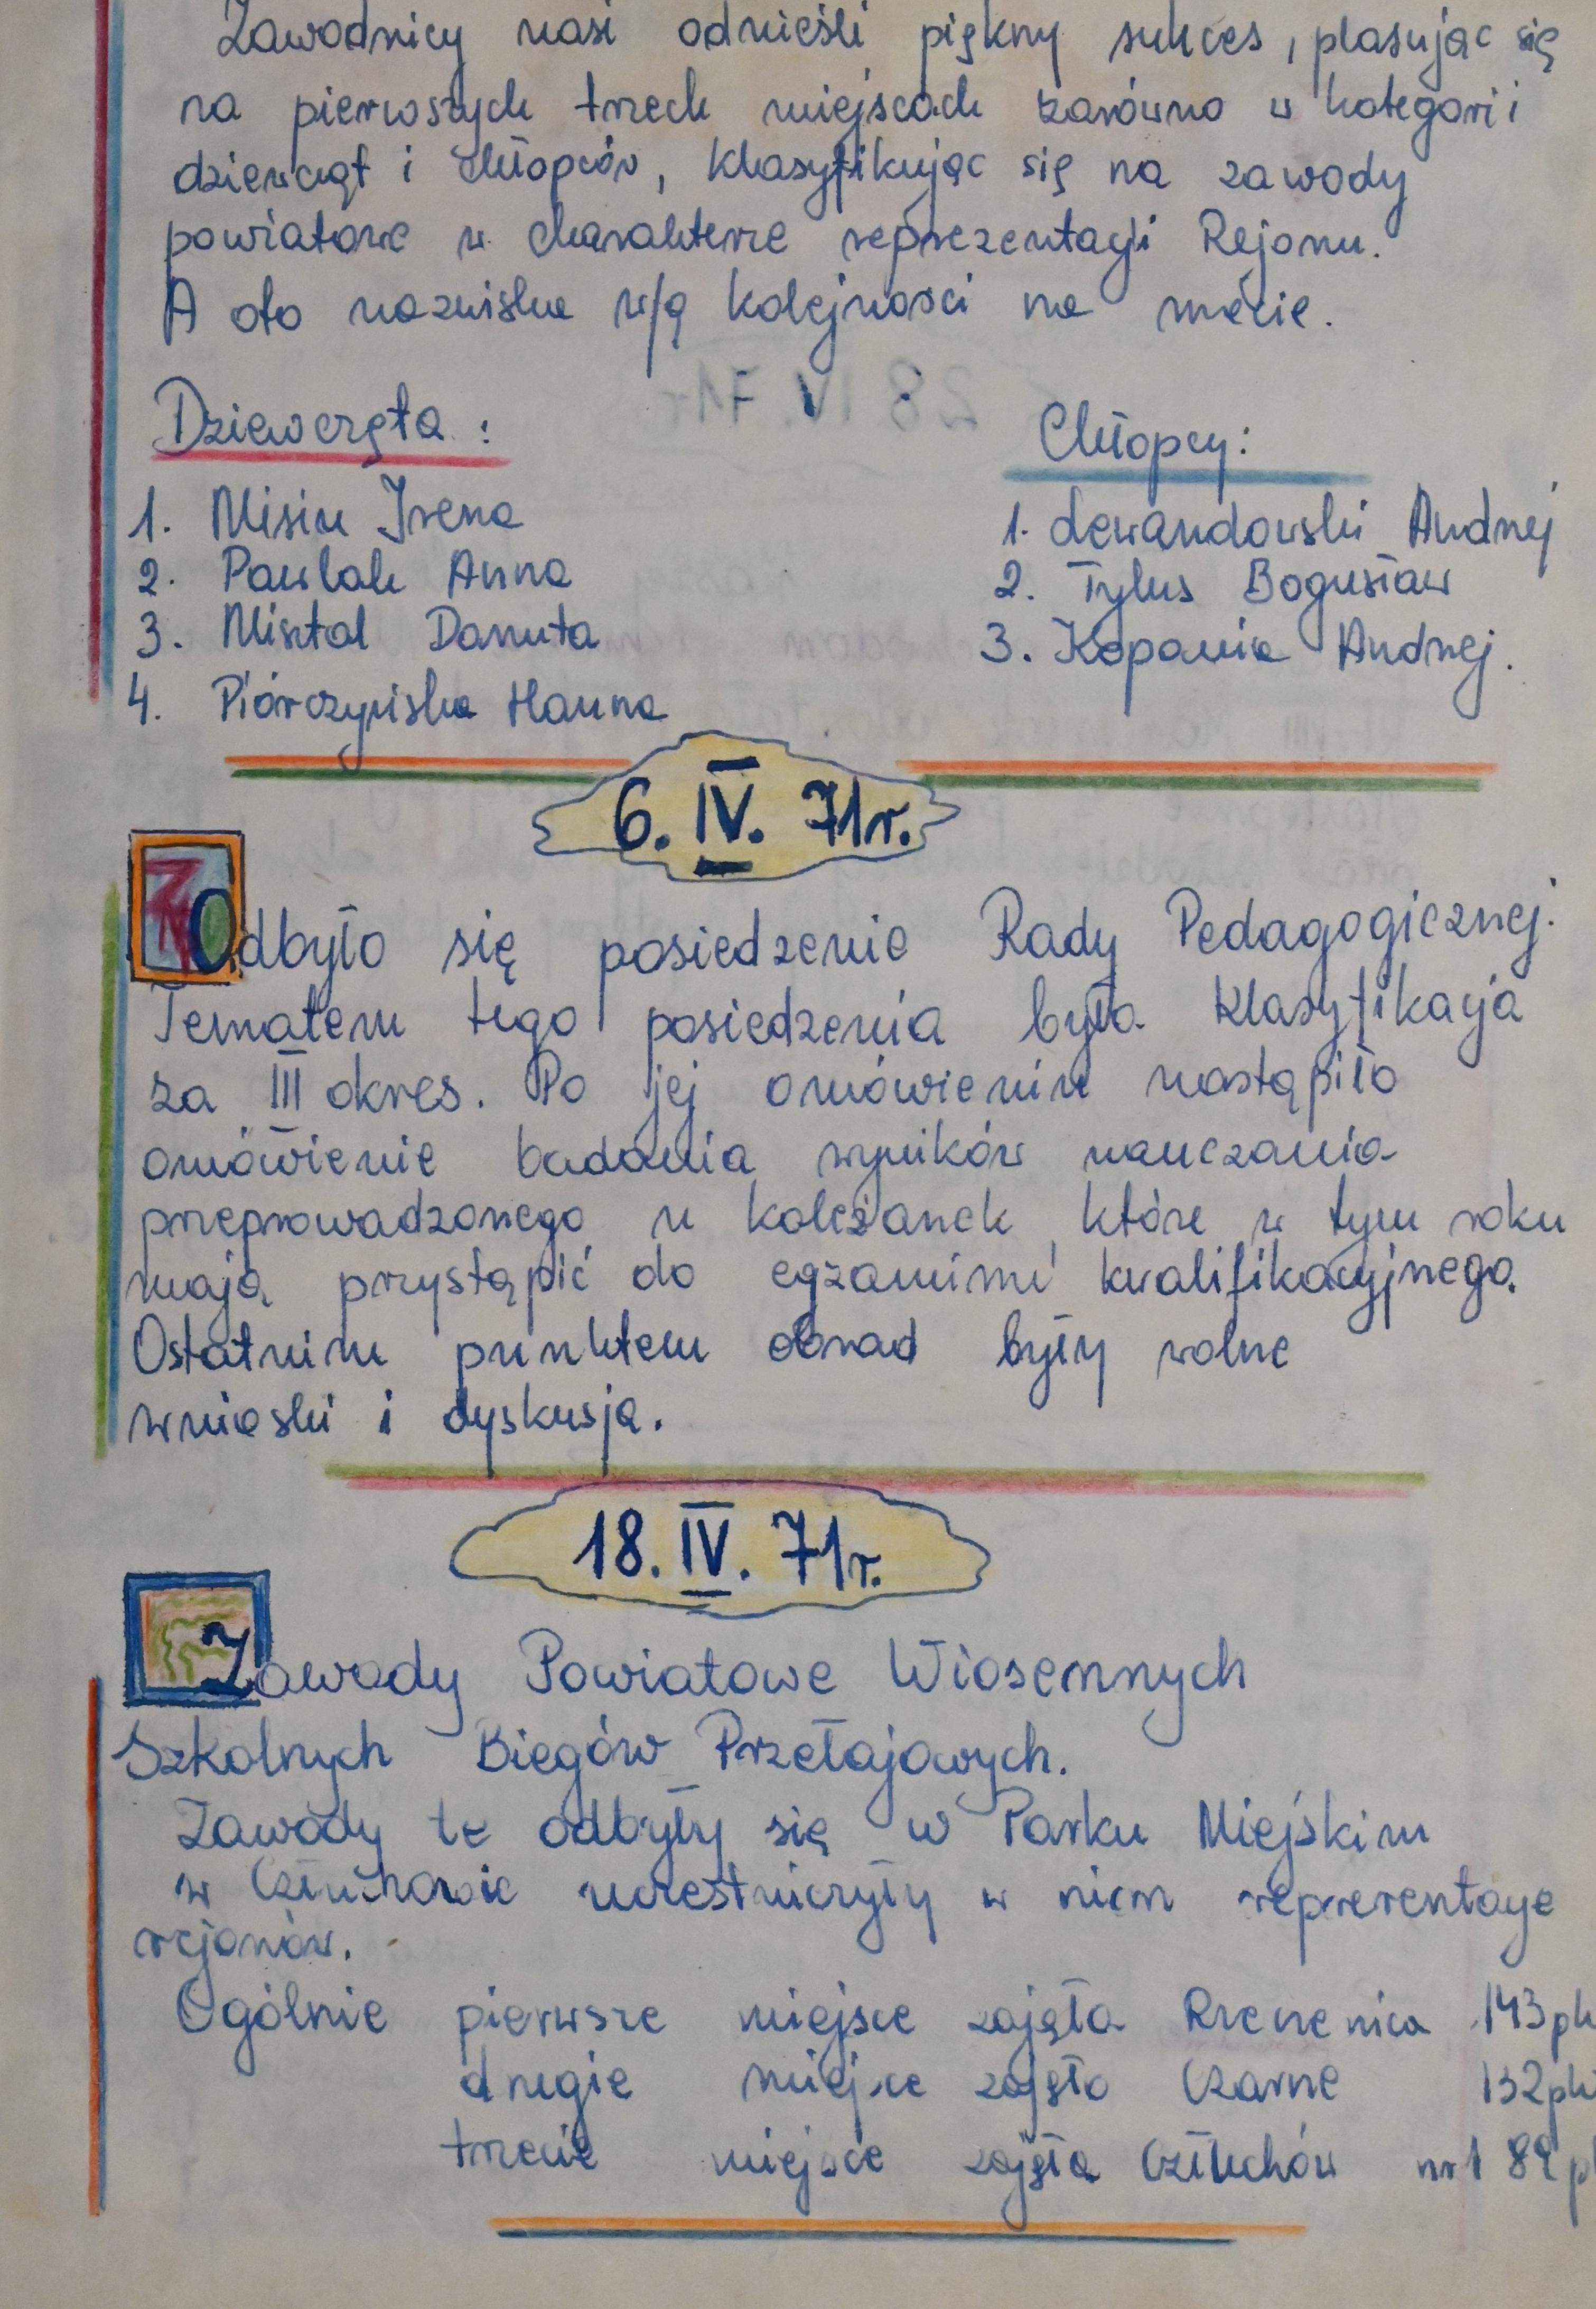 Zawodnicy nasi odnieśli piękny sukces, plasując się
na pierwszych trzech miejscach zarówno w kategorii
dziewcząt i chłopców, klasyfikując się na zawody
powiatowe w charakterze reprezentacji Rejonu.
A oto nazwiska w/g kolejności na mecie.
Dziewczęta:
1. Misiu Irena
2. Pawlak Anna
3. Misztal Danuta
4. Piórczyńska Hanna
Chłopcy:
1. Lewandowski Andrzej
2. Tylus Bogusław
3. Kopania Andrzej.
6. IV. 71r.
Odbyło się posiedzenie Rady Pedagogicznej.
Tematem tego posiedzenia była klasyfikacja
za III okres. Po jej omówieniu nastąpiło
omówienie badania wyników nauczania
przeprowadzonego u koleżanek, które w tym roku
mają przystąpić do egzaminu kwalifikacyjnego.
Ostatnim punktem obrad były wolne
wnioski i dyskusja.
18. IV. 71r.
Zawody Powiatowe Wiosennych
Szkolnych Biegów Przełajowych.
Zawody te odbyły się w Parku Miejskim
w Człuchowie uczestniczyły w nich reprezentacje
rejonów.
Ogólnie pierwsze miejsce zajęła Rzeczenica 143 pk
drugie miejsce zajęło Czarne 132 pk
trzecie miejsce zajęła Człuchów nr 1 89 p